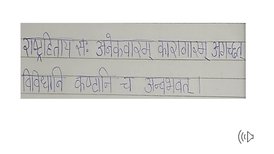 राष्ट्रहिताय सः अनेकवारम् कारागारम् अगच्छत्
विविधानि कष्टानि च अन्वभवत् ।